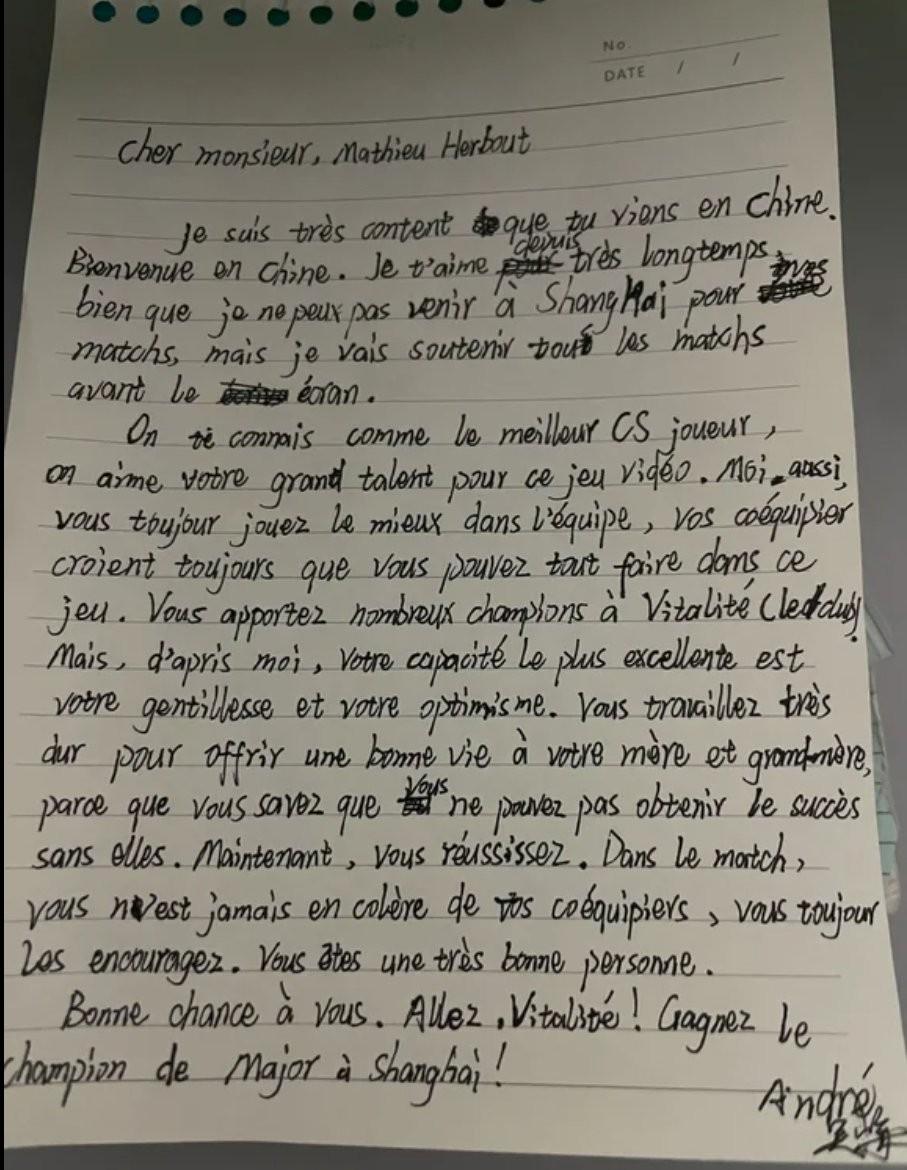 No.
DATE / /
Cher monsieur, Mathieu Herbout
Je suis très content que tu viens en Chine.
Bienvenue en Chine. Je t'aime depuis très longtemps,
bien que je ne peux pas venir à ShangHai pour
matchs, mais je vais soutenir tout les matchs
avant le écran.
On te connais comme le meilleur CS joueur,
on aime votre grand talent pour ce jeu vidéo. Moi aussi,
vous toujour jouez le mieux dans l'équipe, vos coéquipier
croient toujours que vous pouvez tout faire dans ce
jeu. Vous apportez nombreux champions à Vitalité (le club).
Mais, d'apris moi, votre capacité le plus excellente est
votre gentillesse et votre optimisme. Vous travaillez très
dur pour offrir une bonne vie à votre mère et grand-mère,
parce que vous savez que vous ne pouvez pas obtenir le succès
sans elles. Maintenant, vous réussissez. Dans le match,
vous n'est jamais en colère de vos coéquipiers, vous toujour
les encouragez. Vous êtes une très bonne personne.
Bonne chance à vous. Allez, Vitalité! Gagnez le
champion de Major à Shanghai!
André